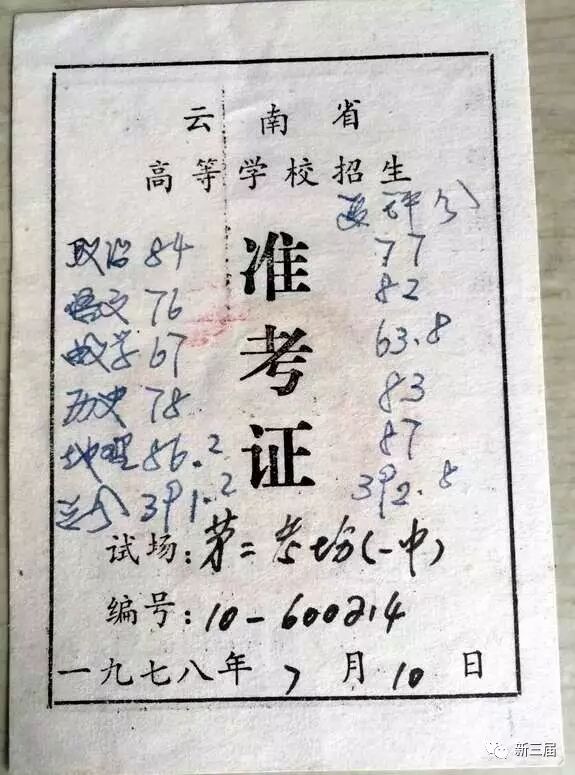 云南省
高等学校招生
准考证
政治 84
语文 76
数学 67
历史 78
地理 86.2
总分 391.2
复评分
77
82
63.8
83
87
392.8
试场:第二考场(一中)
编号:10-600214
一九七八年 7 月 10 日
新三届